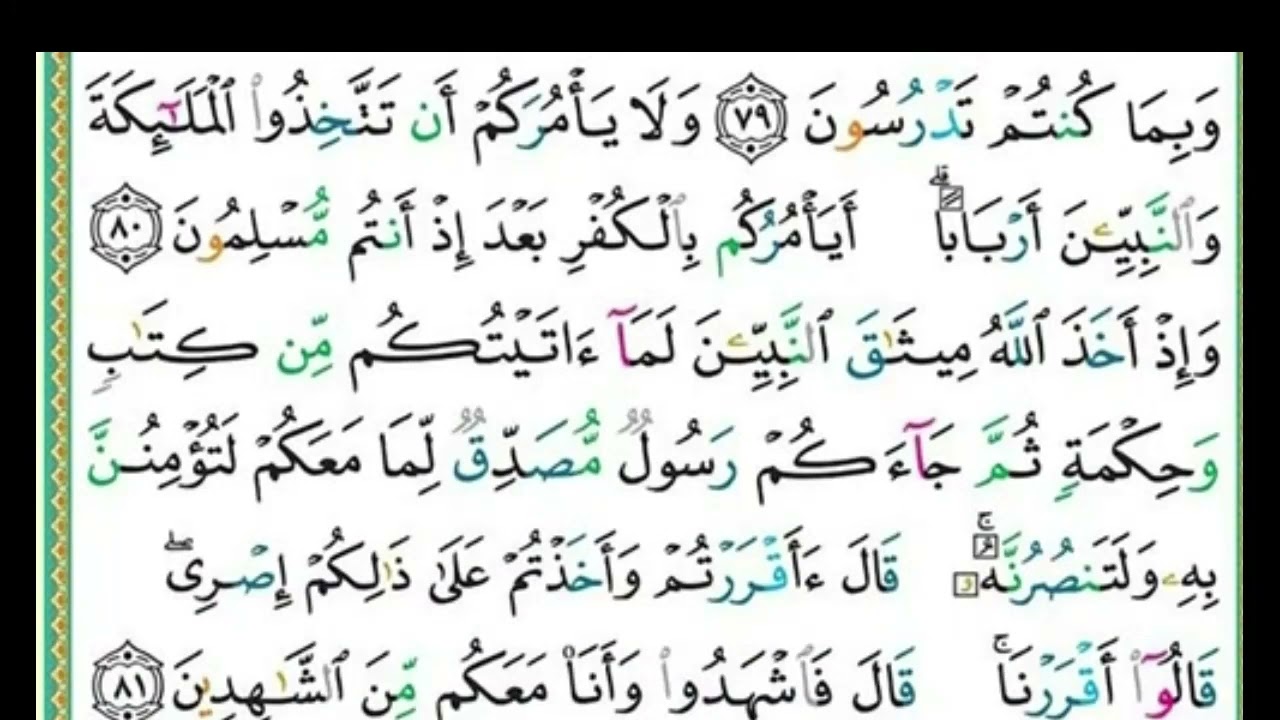 وَبِمَا كُنتُمْ تَدْرُسُونَ ٧٩ وَلَا يَأْمُرَكُمْ أَن تَتَّخِذُوا۟ ٱلْمَلَـٰٓئِكَةَ
وَٱلنَّبِيِّـۧنَ أَرْبَابًا ۗ أَيَأْمُرُكُم بِٱلْكُفْرِ بَعْدَ إِذْ أَنتُم مُّسْلِمُونَ ٨٠
وَإِذْ أَخَذَ ٱللَّهُ مِيثَـٰقَ ٱلنَّبِيِّـۧنَ لَمَآ ءَاتَيْتُكُم مِّن كِتَـٰبٍ
وَحِكْمَةٍ ثُمَّ جَآءَكُمْ رَسُولٌ مُّصَدِّقٌ لِّمَا مَعَكُمْ لَتُؤْمِنُنَّ
بِهِۦ وَلَتَنصُرُنَّهُۥ ۚ قَالَ ءَأَقْرَرْتُمْ وَأَخَذْتُمْ عَلَىٰ ذَٰلِكُمْ إِصْرِى ۖ
قَالُوٓا۟ أَقْرَرْنَا ۚ قَالَ فَٱشْهَدُوا۟ وَأَنَا۠ مَعَكُم مِّنَ ٱلشَّـٰهِدِينَ ٨١